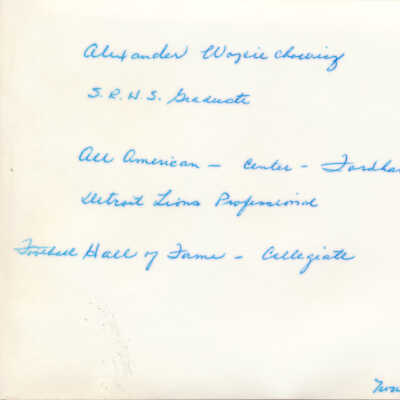 Alexander Wojcie chowicz
S.R.H.S. Graduate
All American - Center - Fordha
Detroit Lions Professional
Football Hall of Fame - Collegiate